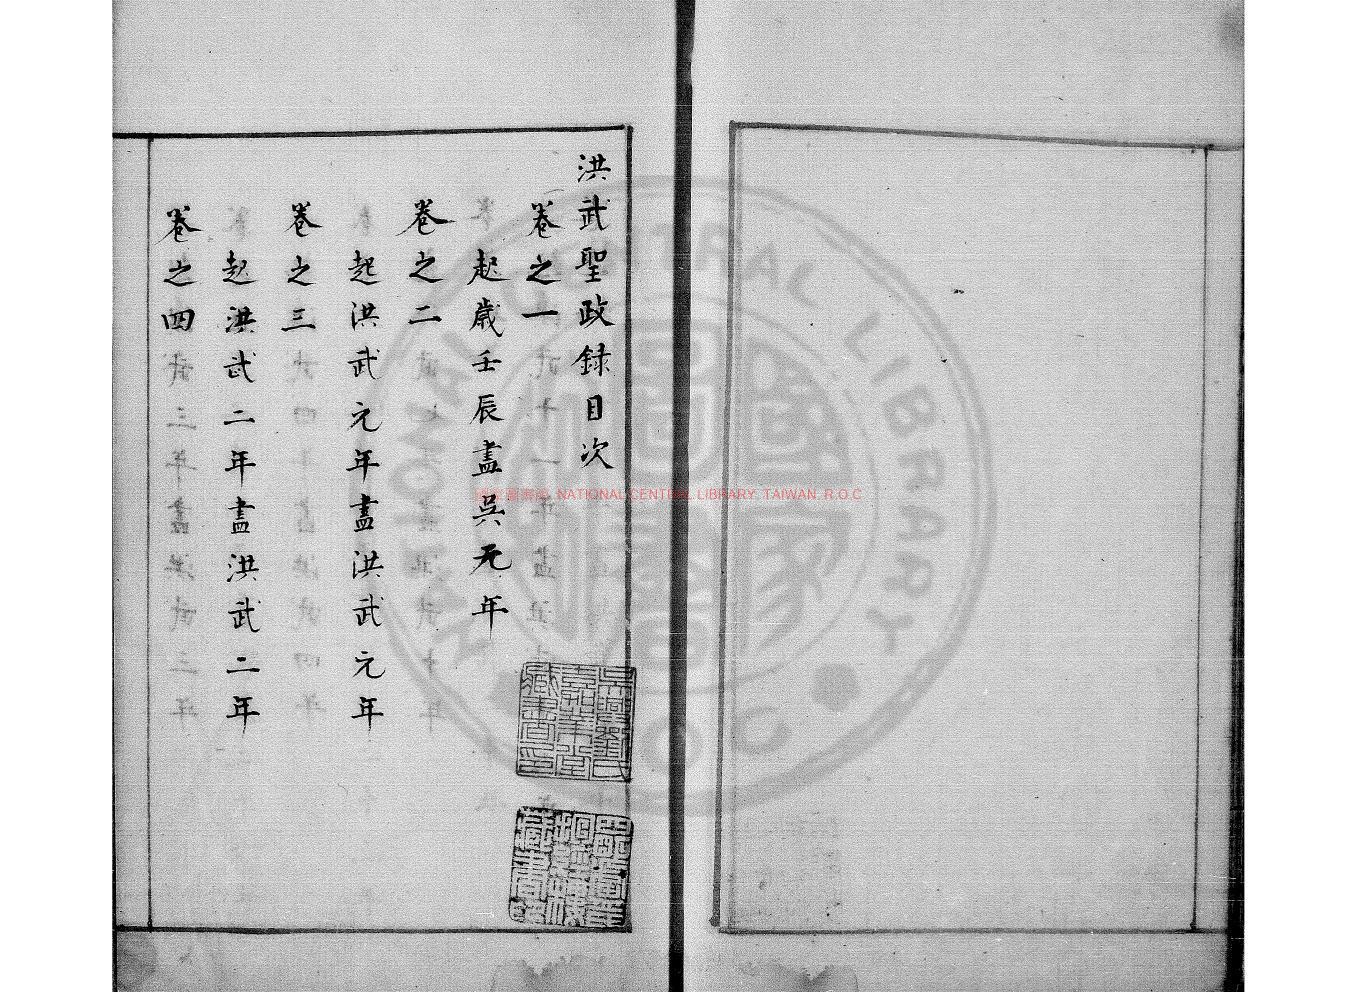 洪武聖政録目次
卷之一
起歲壬辰盡吳元年
卷之二
起洪武元年盡洪武元年
卷之三
起洪武二年盡洪武二年
卷之四
吳興劉氏嘉業堂藏書印
國家圖書館 NATIONAL CENTRAL LIBRARY, TAIWAN, R.O.C